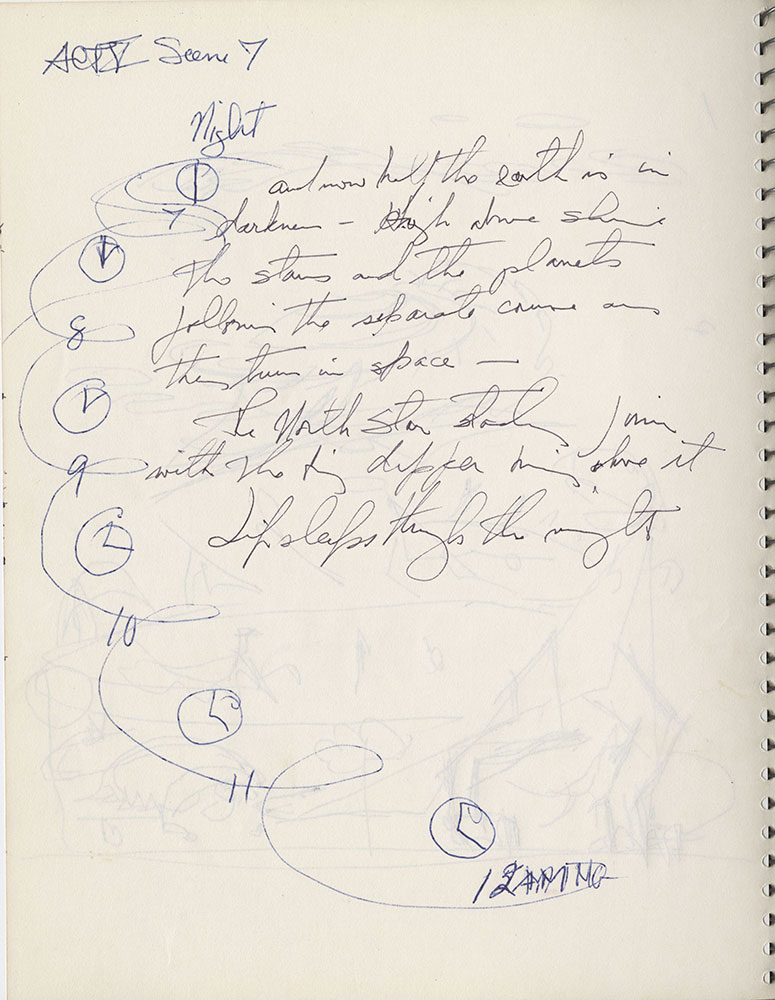 ACT V Scene 7
Night
and now half the earth is in
7 darkness — High above shine
the stars and the planets
8 following the separate course as
they turn in space —
The North Star
9 with the big dipper above it
Life sleeps through the night
10
11
12